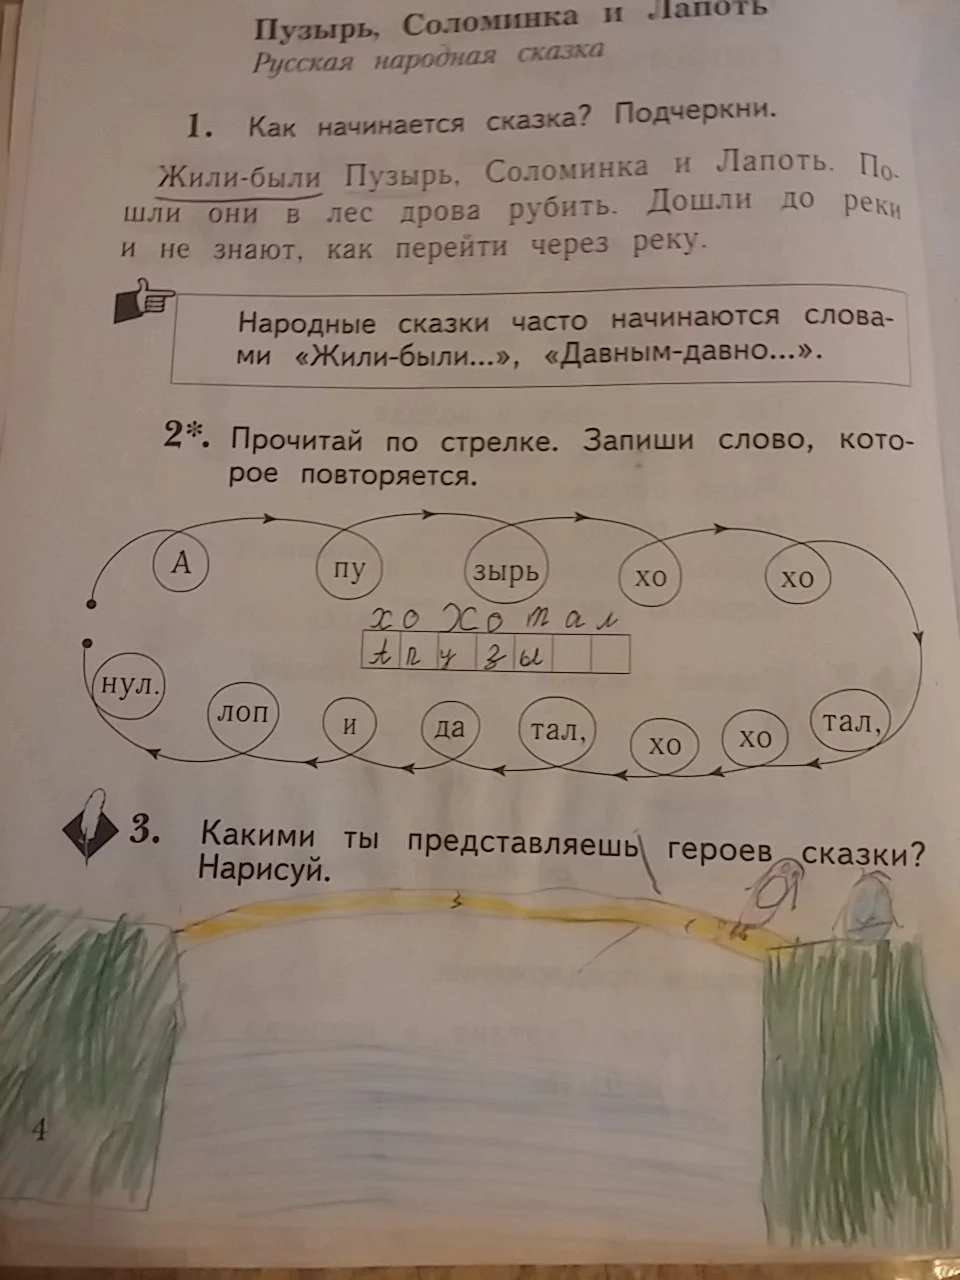 Пузырь, Соломинка и Лапоть
Русская народная сказка
1. Как начинается сказка? Подчеркни.
Жили-были Пузырь, Соломинка и Лапоть. По-
шли они в лес дрова рубить. Дошли до реки
и не знают, как перейти через реку.
Народные сказки часто начинаются слова-
ми «Жили-были...», «Давным-давно...».
2*. Прочитай по стрелке. Запиши слово, кото-
рое повторяется.
А пу зырь хо хо
хохотал
Апузы
нул. лоп и да тал, хо хо тал,
3. Какими ты представляешь героев сказки?
Нарисуй.
4